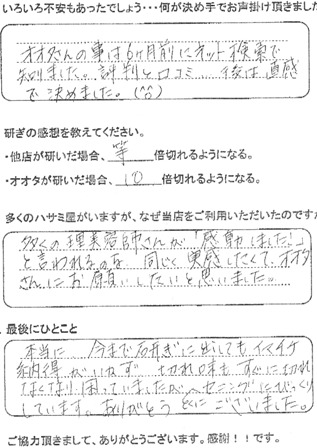 いろいろ不安もあったでしょう・・・何が決め手でお声掛け頂きまし
オオタさんの事は6ヶ月前にネット検索で
知りました。評判と口コミ 後は直感
で決めました。(^^)
研ぎの感想を教えてください。
・他店が研いだ場合、等倍切れるようになる。
・オオタが研いだ場合、10倍切れるようになる。
多くのハサミ屋がいますが、なぜ当店をご利用いただいたのですか
多くの理美容師さんが「感動しました!」
と言われるのを 同じく実感したくて、オオタ
さんにお願いしたいと思いました。
最後にひとこと
本当に 今まで研ぎに出してもイマイチ
納得がいかず 切れ味も すぐに切れ
なくなり困っていましたが、セニングにびっくり
しています。ありがとうございました。
ご協力頂きまして、ありがとうございます。感謝!!です。